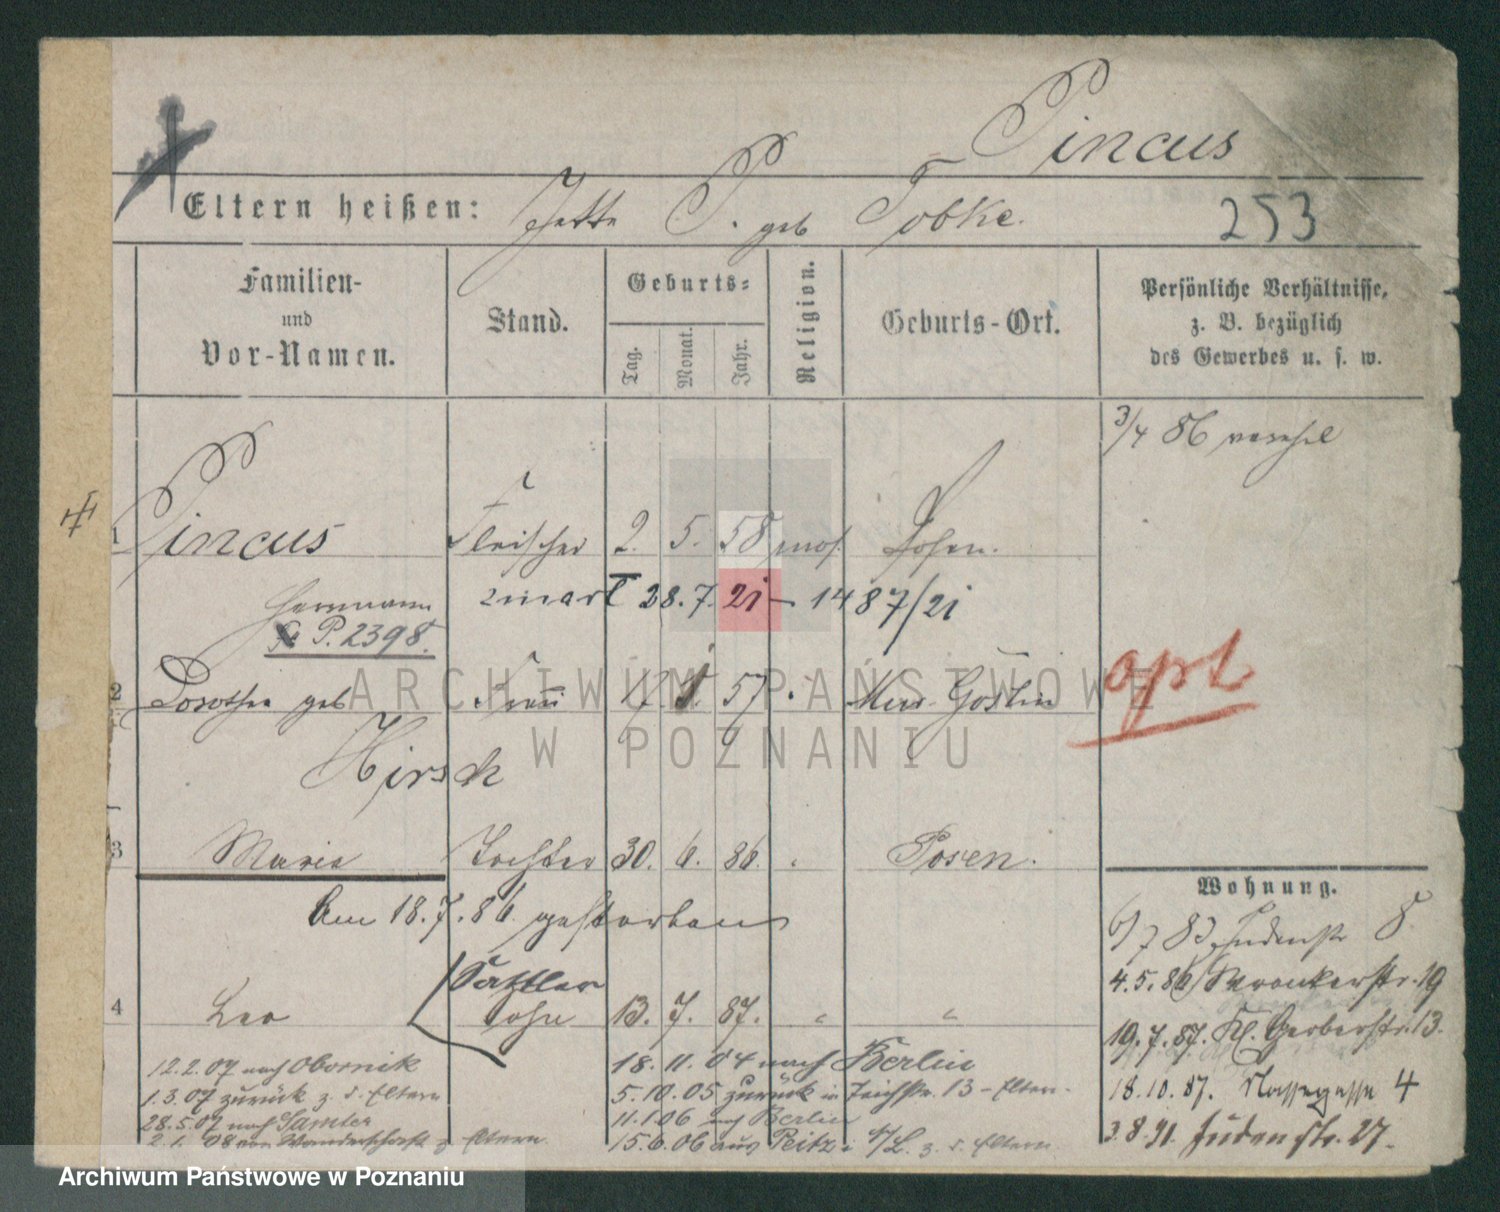 Pincus
Eltern heißen: Jette P. geb Tobke.
253
Familien- und Vor-Namen.
Stand.
Geburts-
Tag. Monat. Jahr.
Religion.
Geburts-Ort.
Persönliche Verhältnisse, z. B. bezüglich des Gewerbes u. s. w.
3/4 86
1 Pincus Fleischer 2. 5. 58 mos. Posen.
Herrmann zmarł 28.7.21 – 1487/21
P. 2398.
2 Dorothea geb Frau 17 57 Mur. Goslin
apt
Hirsch
3 Marie Tochter 30. 6. 86. Posen.
Am 18.7.86. gestorben
Sattler
4 Leo Sohn 13. 7. 87. " "
12.2.07 nach Obornik
1.3.07 zurück z. d. Eltern
28.5.07 nach Samter
2.1.08 von Wanderschaft z Eltern
18.11.04 nach Berlin
5.10.05 zurück in Teichstr. 13 – Eltern.
11.1.06 nach Berlin
15.6.06 aus Peitz z. d. Eltern
Wohnung.
6/7 83 Judenstr 8.
4.5.86 Wronkerstr. 19
19.7.87. Kl. Gerberstr. 13.
18.10.87. Nassegasse 4
3.8.91. Judenstr. 27.
ARCHIWUM PAŃSTWOWE
W POZNANIU
Archiwum Państwowe w Poznaniu